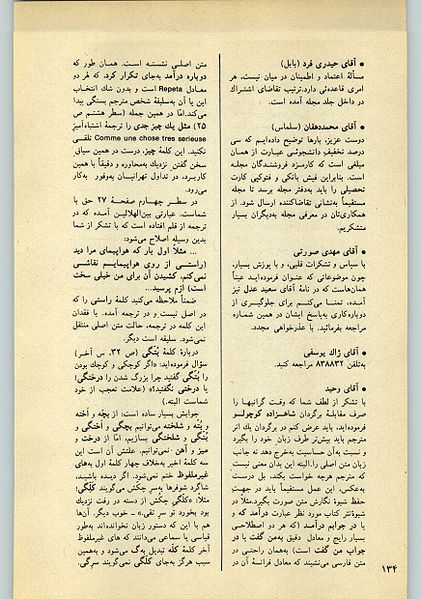 ● آقای حیدری فرد (بابل)
مسألهٔ اعتماد و اطمینان در میان نیست، هر
امری قاعده‌ئی دارد. ترتیب تقاضای اشتراك
در داخل جلد مجله آمده است.
● آقای محمددهقان (سلماس)
دوست عزیز، بارها توضیح داده‌ایم که سی
درصد تخفیف دانشجوئی عبارت از همان
مبلغی است که کارمزد فروشندگان مجله
است. بنابراین فیش بانکی و فتوکپی کارت
تحصیلی را باید به‌دفتر مجله برسد تا مجله
مستقیماً به‌نشانی تقاضاکننده ارسال شود. از
همکاری‌تان در معرفی مجله به‌دیگران بسیار
متشکریم.
● آقای مهدی صورتی
با سپاس و تشکرات قلبی، و با پوزش بسیار،
چون موضوعاتی که عنوان فرموده‌اید عیناً
همان‌هاست که در نامهٔ آقای سعید عدل نیز
آمده، تمنا می‌کنم برای جلوگیری از
دوباره‌کاری به‌پاسخ ایشان در همین شماره
مراجعه بفرمائید. با عذرخواهی مجدد.
● آقای ژاك یوسفی
به‌تلفن ۸۳۸۸۳۲ مراجعه کنید.
● آقای وحید
با تشکر از لطف شما که وقت گرانبها را
صرف مقابلهٔ برگردان شاهزاده کوچولو
فرموده‌اید، باید عرض کنم در برگردان یك اثر
مترجم باید بیش‌تر طرف زبان خود را بگیرد
و نسبت به‌آن حساسیت به‌خرج دهد نه جانب
زبان متن اصلی را. البته این بدان معنی نیست
که مترجم هرچه خواست بکند، بل درست
به‌عکس، این عمل مستقیماً باید در جهت
حفظ شیوهٔ نگارش متن صورت بگیرد. مثلاً در
شیوهٔ نثر کتاب مورد نظر عبارت درآمد که و
یا در جوابم درآمد (که هر دو اصطلاحی
بسیار رایج و معادل دقیق به‌من گفت یا در
جواب من گفت است) به‌همان راحتی در
متن فارسی می‌نشیند که معادل فرانسهٔ آن در
متن اصلی نشسته است. همان طور که
دوباره درآمد به‌جای تکرار کرد. که هر دو
معادل Repeta است و بدون شك انتخاب
این یا آن به‌سلیقهٔ شخص مترجم بستگی پیدا
می‌کند. امّا در همین جمله (سطر هشتم ص
۲۵) مثل یك چیز جدی را ترجمهٔ اشتباه‌آمیز
Comme une chose tres serieuse تلقی
نکنید. این کلمهٔ چیز، درست در همین سیاق
سخن گفتن نزدیك به‌محاوره و دقیقاً با همین
کاربرد، در تداول تهرانیان به‌وفور به‌کار
می‌رود.
در سطر چهارم صفحهٔ ۲۷ حق با
شماست. عبارتی بین‌الهلالین آمده که در
ترجمه از قلم افتاده است که با تشکر از شما
بدین وسیله اصلاح می‌شود:
... مثلاً اول بار که هواپیمای مرا دید
(راستی از روی هواپیمایم نقاشی
نمی‌کنم. کشیدن آن برای من خیلی سخت
است) ازم پرسید...
ضمناً ملاحظه می‌کنید کلمهٔ راستی را که
در اصل نیست و در ترجمه آمده. با فقدان
این کلمه در ترجمه، حالت متن اصلی منتقل
نمی‌شود. سلیقه است دیگر.
دربارهٔ کلمهٔ بُتّگی (ص ۳۲، س آخر)
سؤال فرموده‌اید: «اگر کوچکی و کوچك بودن
را بُتّگی گفتید چرا بزرگ شدن را درختگی؛
یا درختی نگفتید؟» (علامت تعجب از خود
شماست البته.)
جوابش بسیار ساده است: از بچّه و اَخته
و بُتّه و شلخته می‌توانیم بچگی و اَختگی و
بُتّگی و شلختگی بسازیم، امّا از درخت و
میز و آهن نمی‌توانیم. علتش آن است این
سه کلمهٔ اخیر به‌خلاف چهار کلمهٔ اول به‌های
غیرملفوظ ختم نمی‌شود. اگر دیده باشید،
شاگرد شوفرها به‌سر چکش می‌گویند کلّگی؛
مثلاً: «کلّگی چکش از دسته در رفت نزدیك
بود بخورد تو سر تقی.» – خوب دیگر. آن‌ها
هم با این که دستور زبان نخوانده‌اند به‌طور
قیاسی یا سماعی می‌دانند که های غیرملفوظ
آخر کلمهٔ کله تبدیل به‌گ می‌شود و به‌همین
سبب هرگز به‌جای کلّگی نمی‌گویند سرگی.
۱۳۴